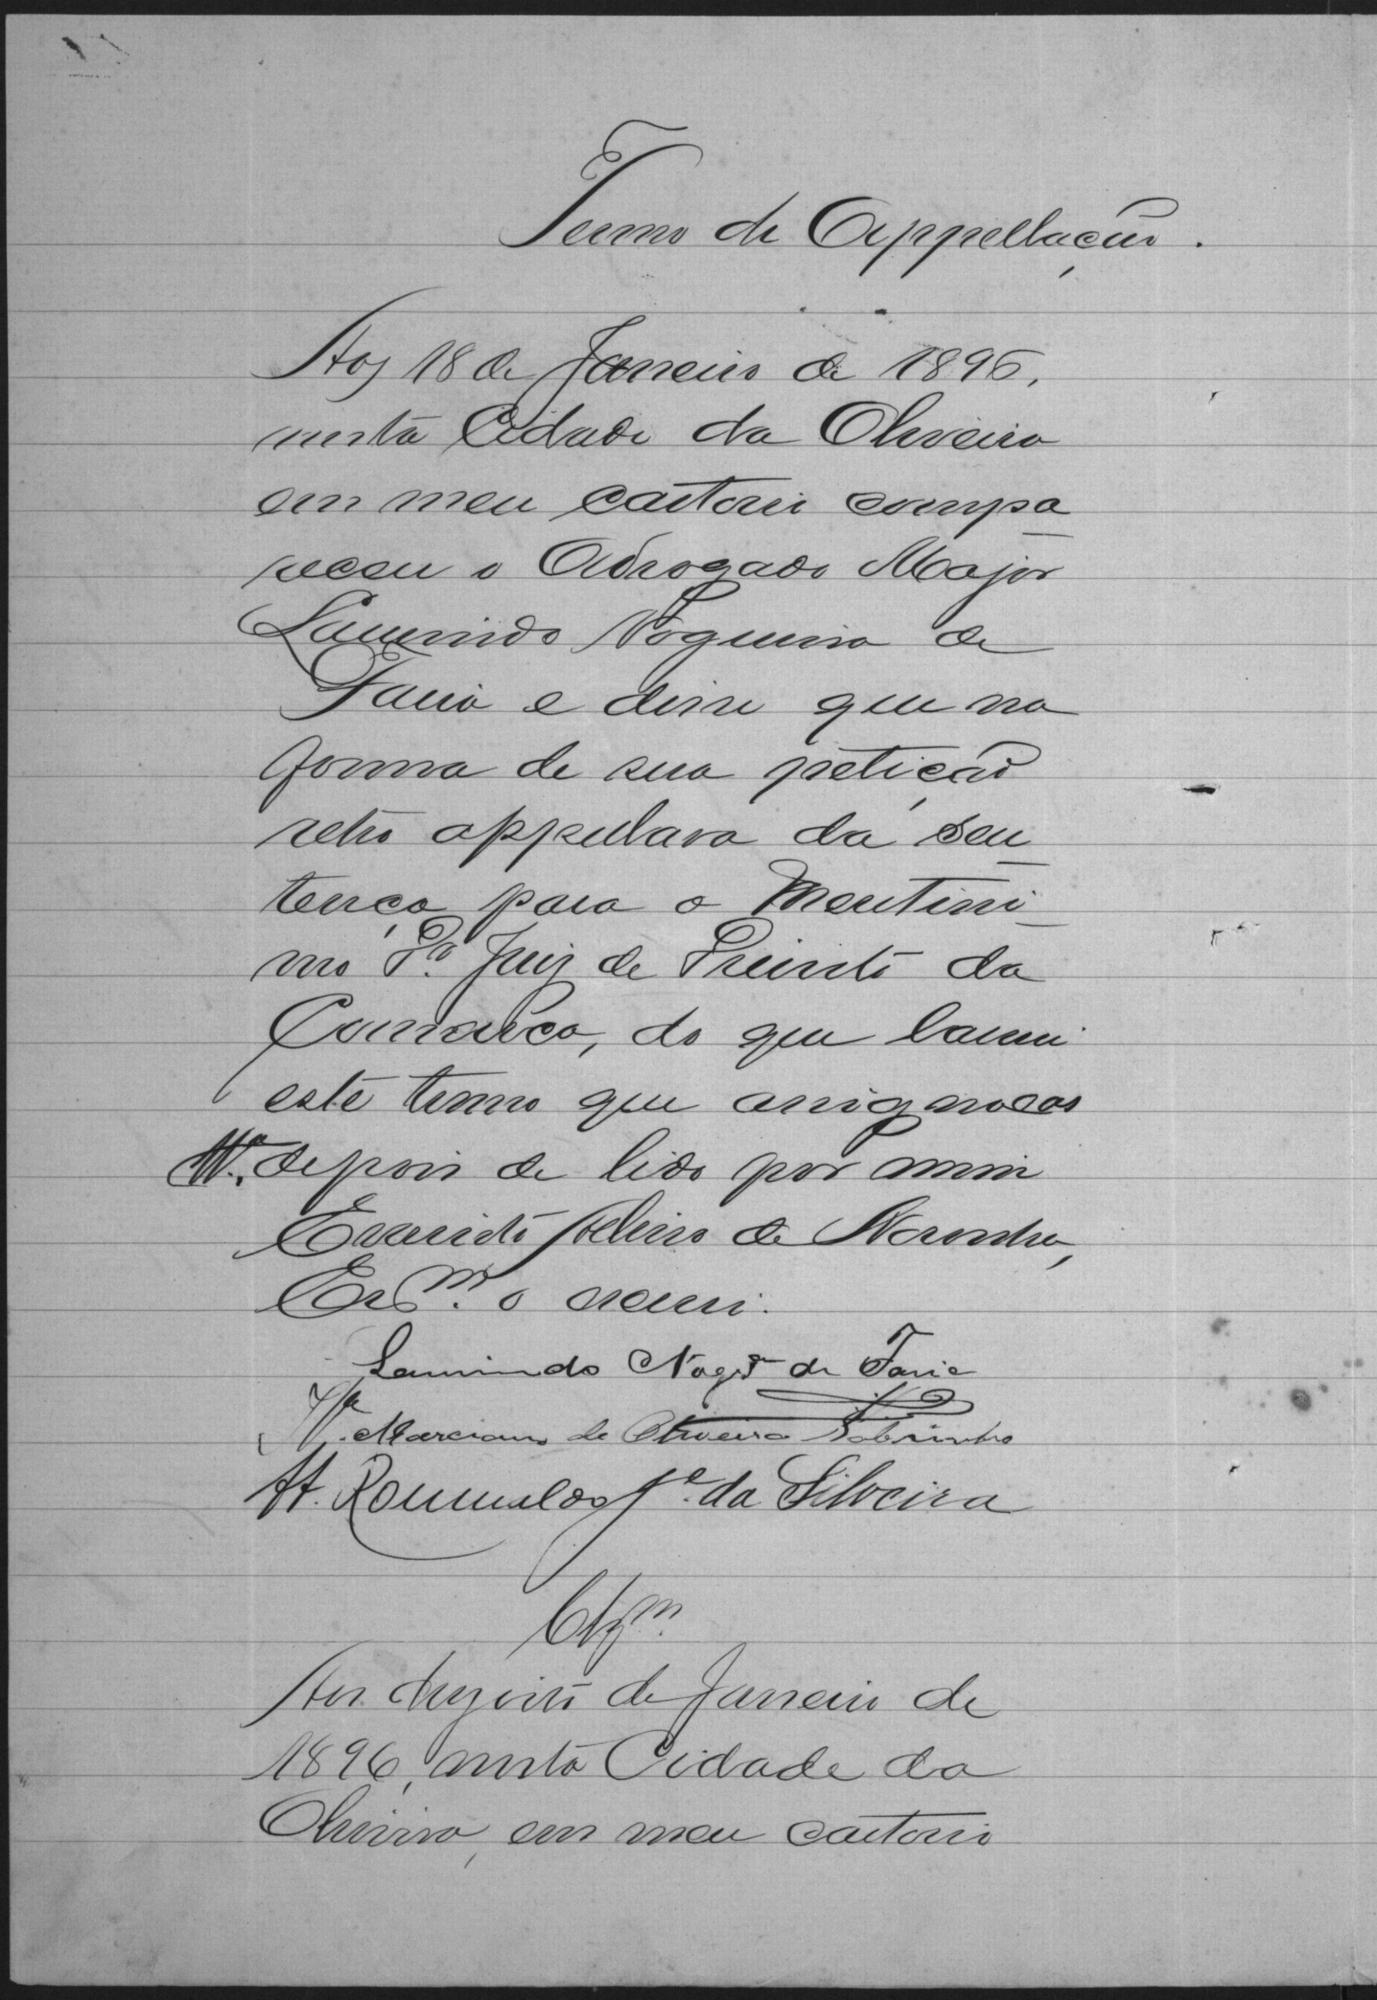 Termo de Appellação.
Aos 18 de Janeiro de 1896,
nesta Cidade da Oliveira
em meu cartorio compa
receu o Advogado Major
Laurindo Nogueira de
Faria e disse que na
forma de sua petição
retro appellava da sen
tença para o Meritissi
mo Dr. Juiz de Direito da
Comarca, do que lavrei
este termo que assigna cos
depois de lido por mim
Evaristo de Noronha,
Escm. o escrevi.
Laurindo Nogrª de Faria
Tª. Marciano de Oliveira Sobrinho
Tt. Romualdo Je. da Silveira
Aos dezoito de Janeiro de
1896, nesta Cidade da
Oliveira, em meu cartorio